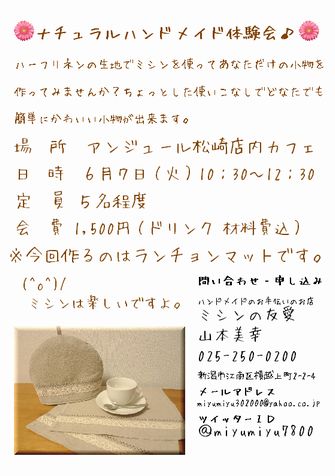 ナチュラルハンドメイド体験会♪
ハーフリネンの生地でミシンを使ってあなただけの小物を
作ってみませんか？ちょっとした使いこなしでどなたでも
簡単にかわいい小物が出来ます。
場　所　アンジュール松崎店内カフェ
日　時　６月７日（火）１０：３０～１２：３０
定　員　５名程度
会　費　1,500円（ドリンク 材料費込）
※今回作るのはランチョンマットです。
(^o^)/
ミシンは楽しいですよ。
問い合わせ・申し込み
ハンドメイドのお手伝いのお店
ミシンの友愛
山本美幸
025-250-0200
新潟市江南区横越上町2-2-4
メールアドレス
miyumiyu302000@yahoo.co.jp
ツイッターＩＤ
@miyumiyu7800